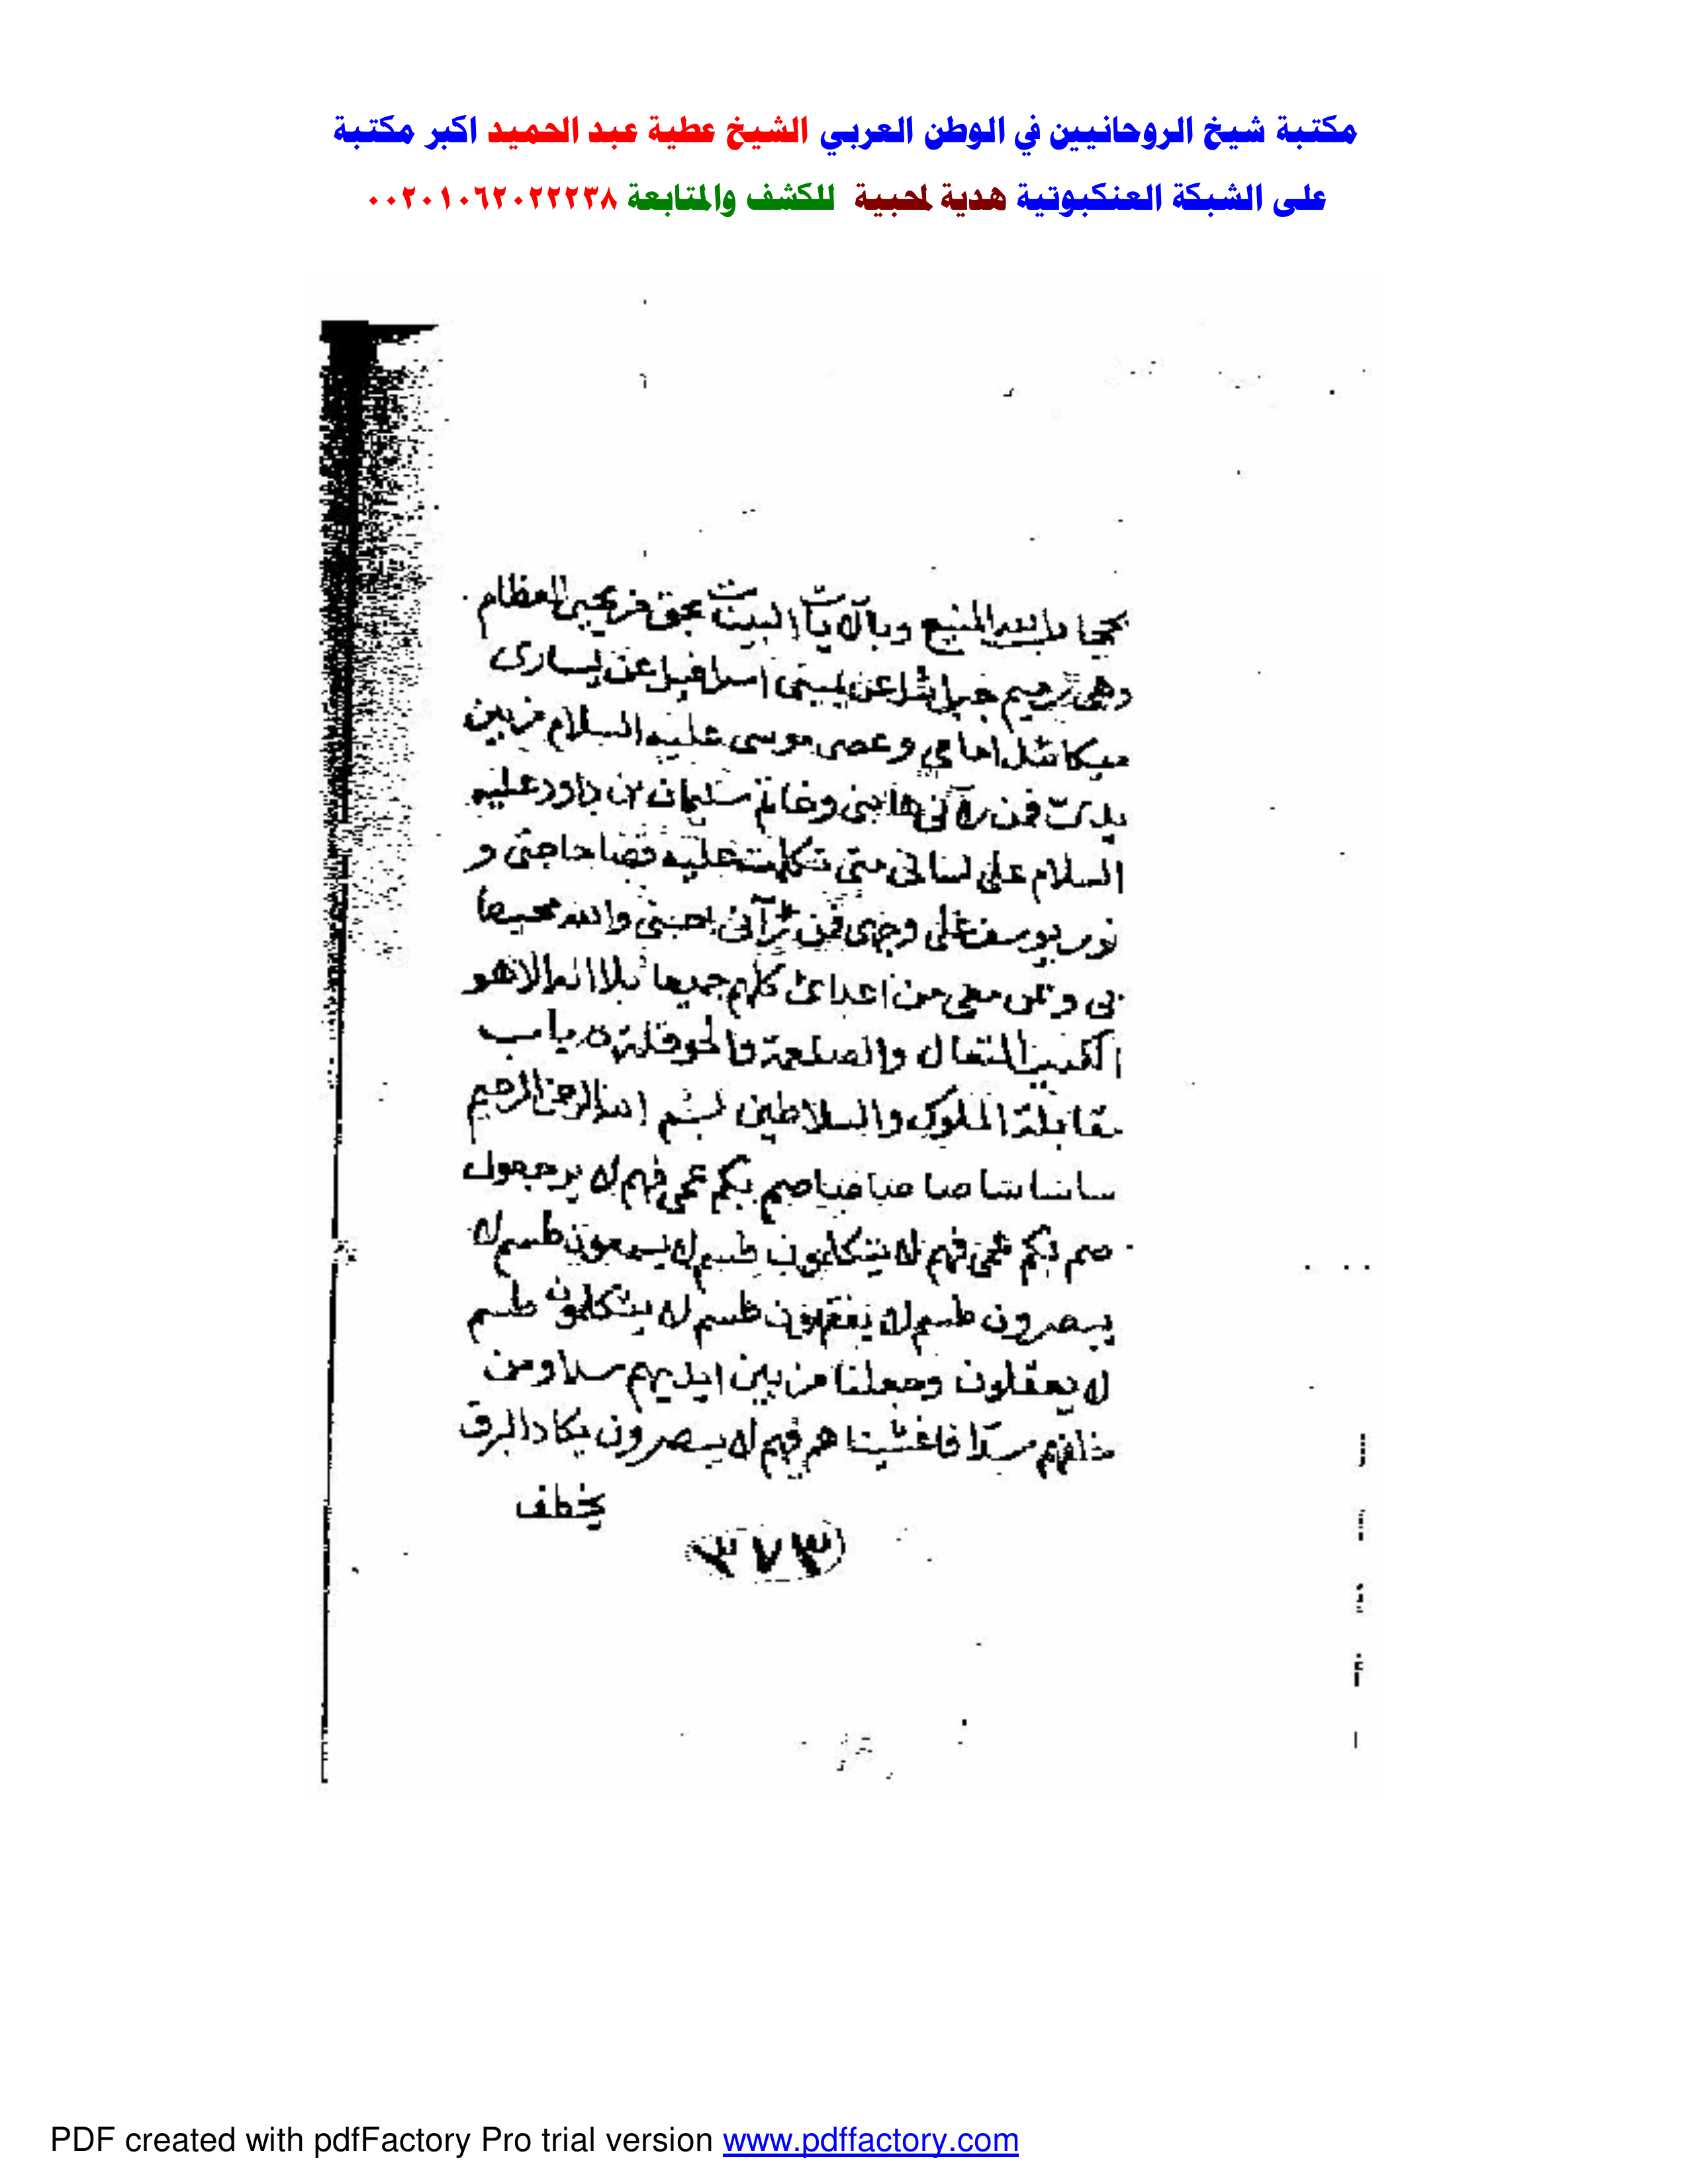 مكتبة شيخ الروحانيين في الوطن العربي الشيخ عطية عبد الحميد اكبر مكتبة
على الشبكة العنكبوتية هدية لمحبية للكشف والمتابعة ٠٠٢٠١٠٦٢٠٢٢٢٣٨
الله المنيع وبالآيات البينات بحق من يحيى العظام
وهى رميم عن يمينى اسرافيل عن يسارى
امامي وعصى موسى عليه السلام من بين
يدى فمن رآنى هابنى وخاتم سليمان بن داود عليه
السلام على لسانى متى تكلمت عليه قضا حاجتى و
نور يوسف على وجهى فمن رآنى احبنى والله محيط
بى وعن معى من اعدائ كلهم جميعا الا هو
الكبير المتعال والحوقلة باب
مقابلة الملوك والسلاطين بسم الله الرحمن الرحيم
صم بكم عمى فهم لا يرجعون
صم بكم عمى فهم لا يتكلمون طسم لا يسمعون طسم لا
يبصرون طسم لا طسم لا يتكلمون طسم
لا يعقلون وجعلنا من بين ايديهم سدا ومن
خلفهم سدا فاغشيناهم فهم لا يبصرون يكاد البرق
يخطف
٣٧٣
PDF created with pdfFactory Pro trial version www.pdffactory.com